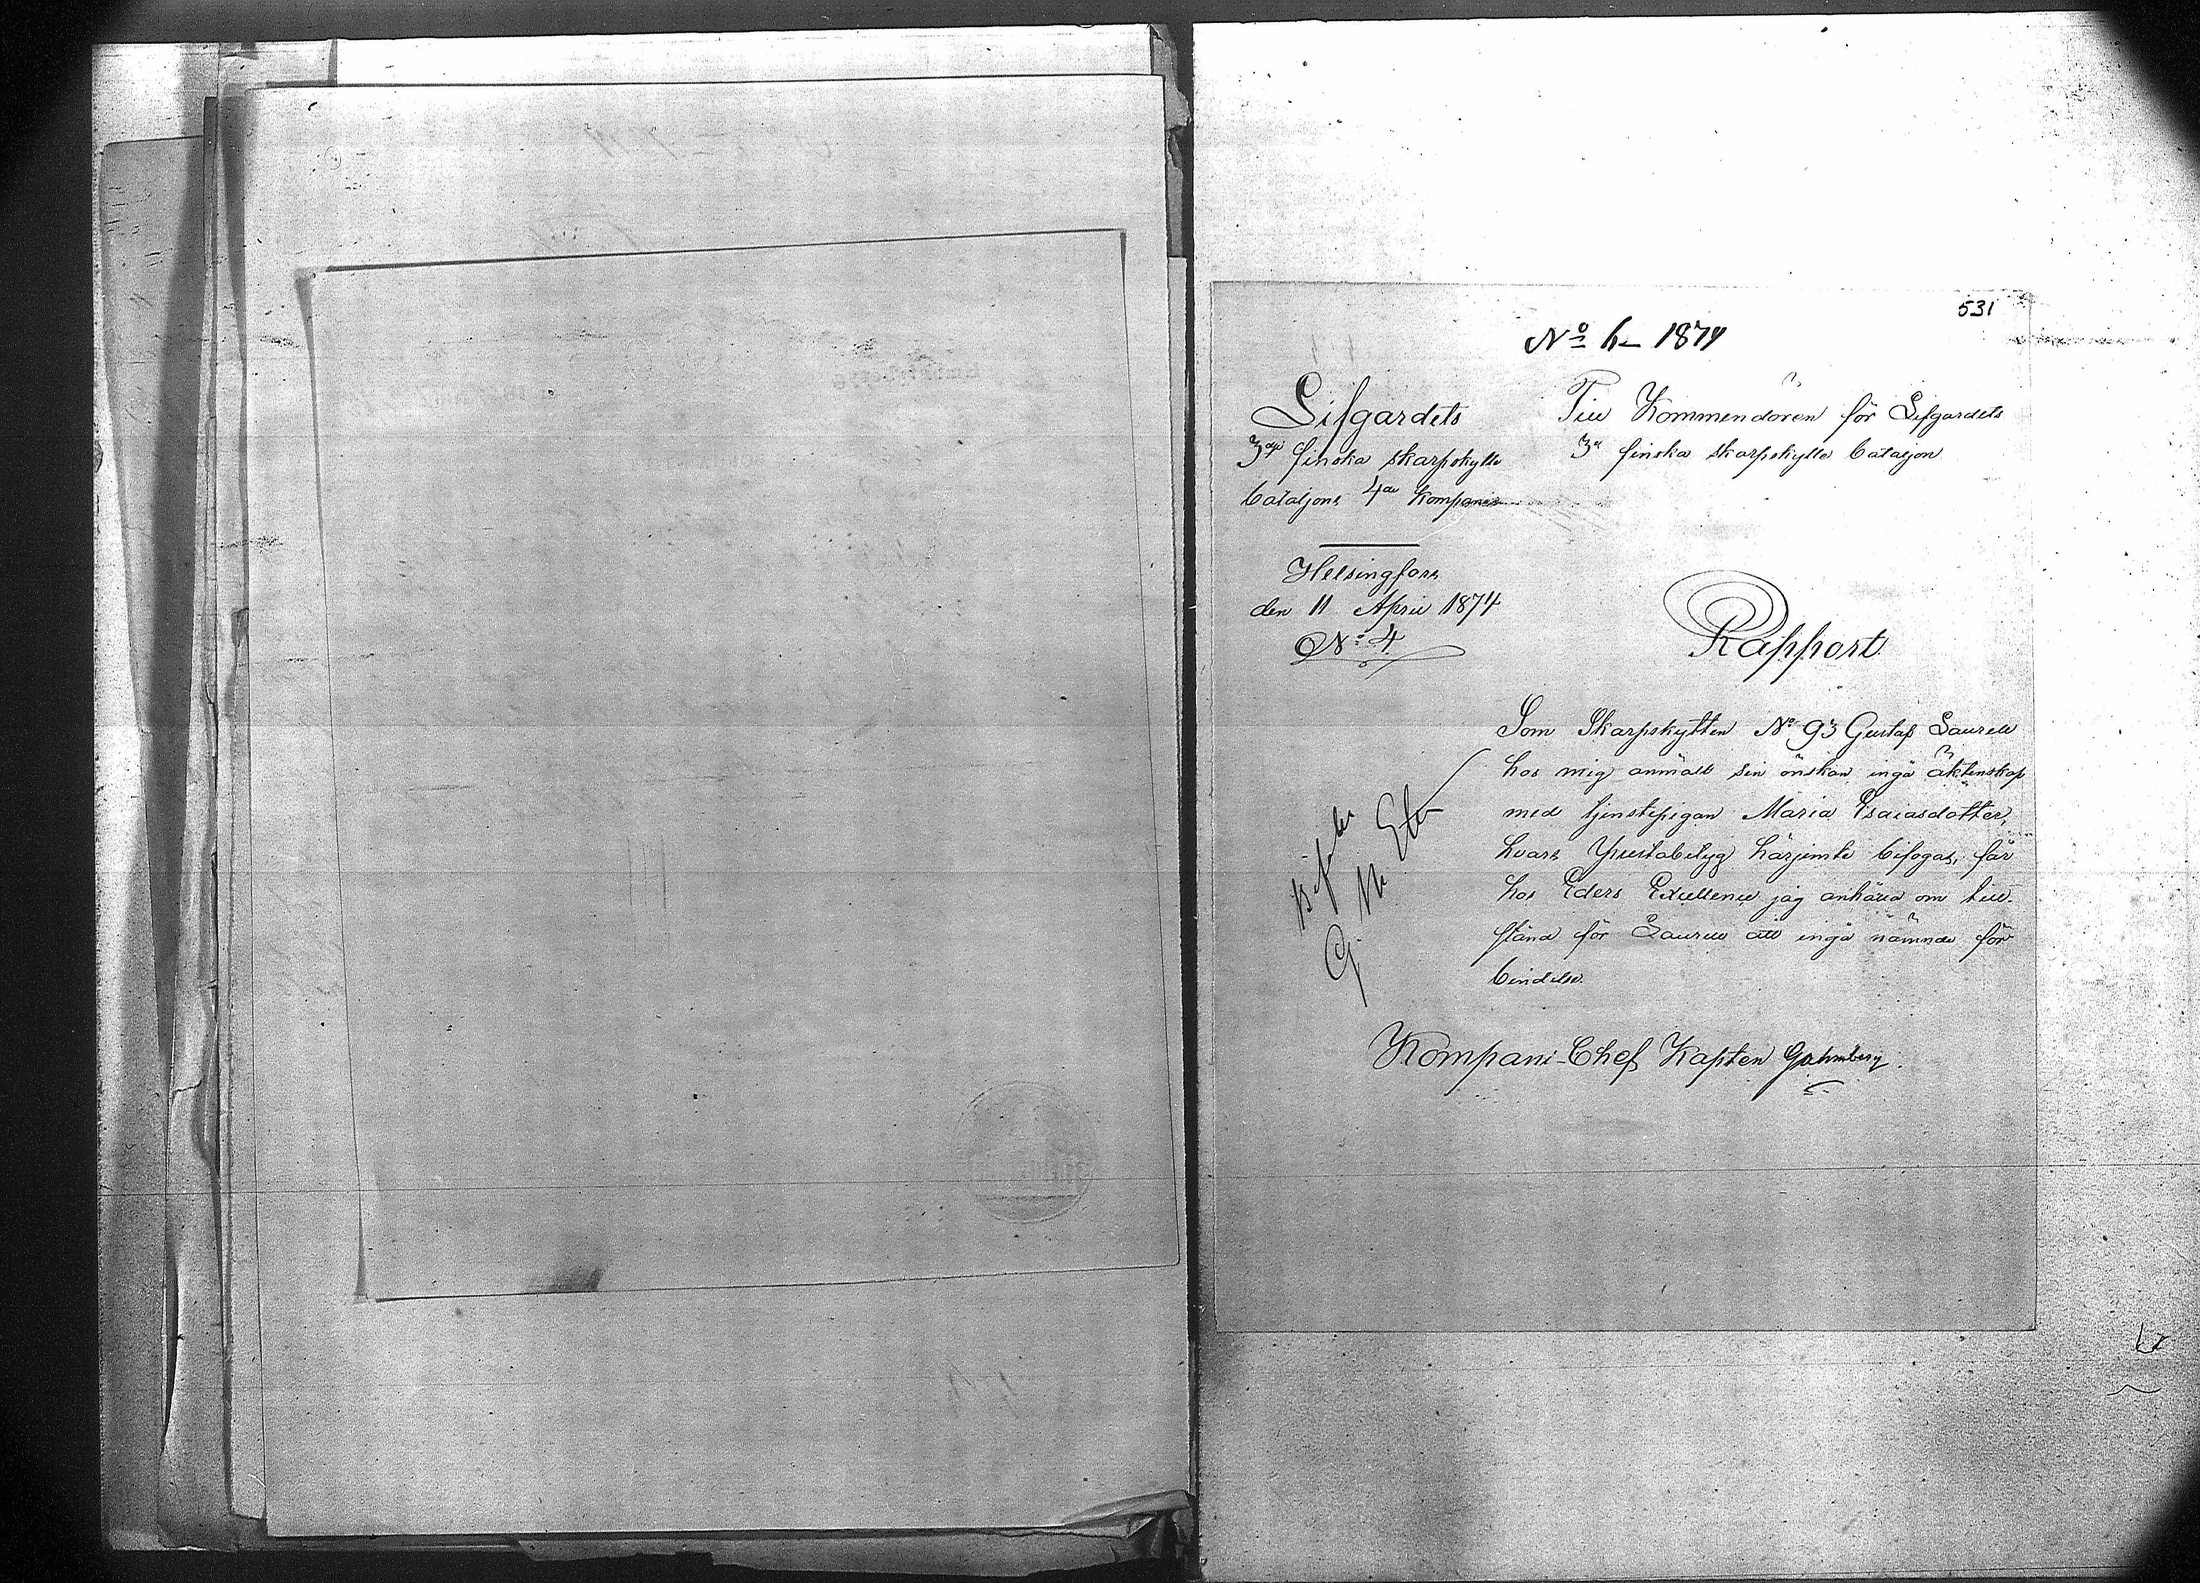 531
No 4 1874
Lifgardets
3dje finska skarpskytte
bataljons 4de kompani
Helsingfors
den 11 April 1874
No 4
Till Kommendören för Lifgardets
3e finska skarpskytte bataljon
Rapport
Som Skarpskytten No 93 Gustaf Laurell
hos mig anmält sin önskan ingå äktenskap
med tjenstepigan Maria Esaiasdotter,
hvars Prestabetyg härjemte bifogas, får
hos Eders Excellence jag anhära om till-
stånd för Laurell att ingå nämnde för
bindelse.
Bifalles
Kompani-Chef Kapten Gahmberg.